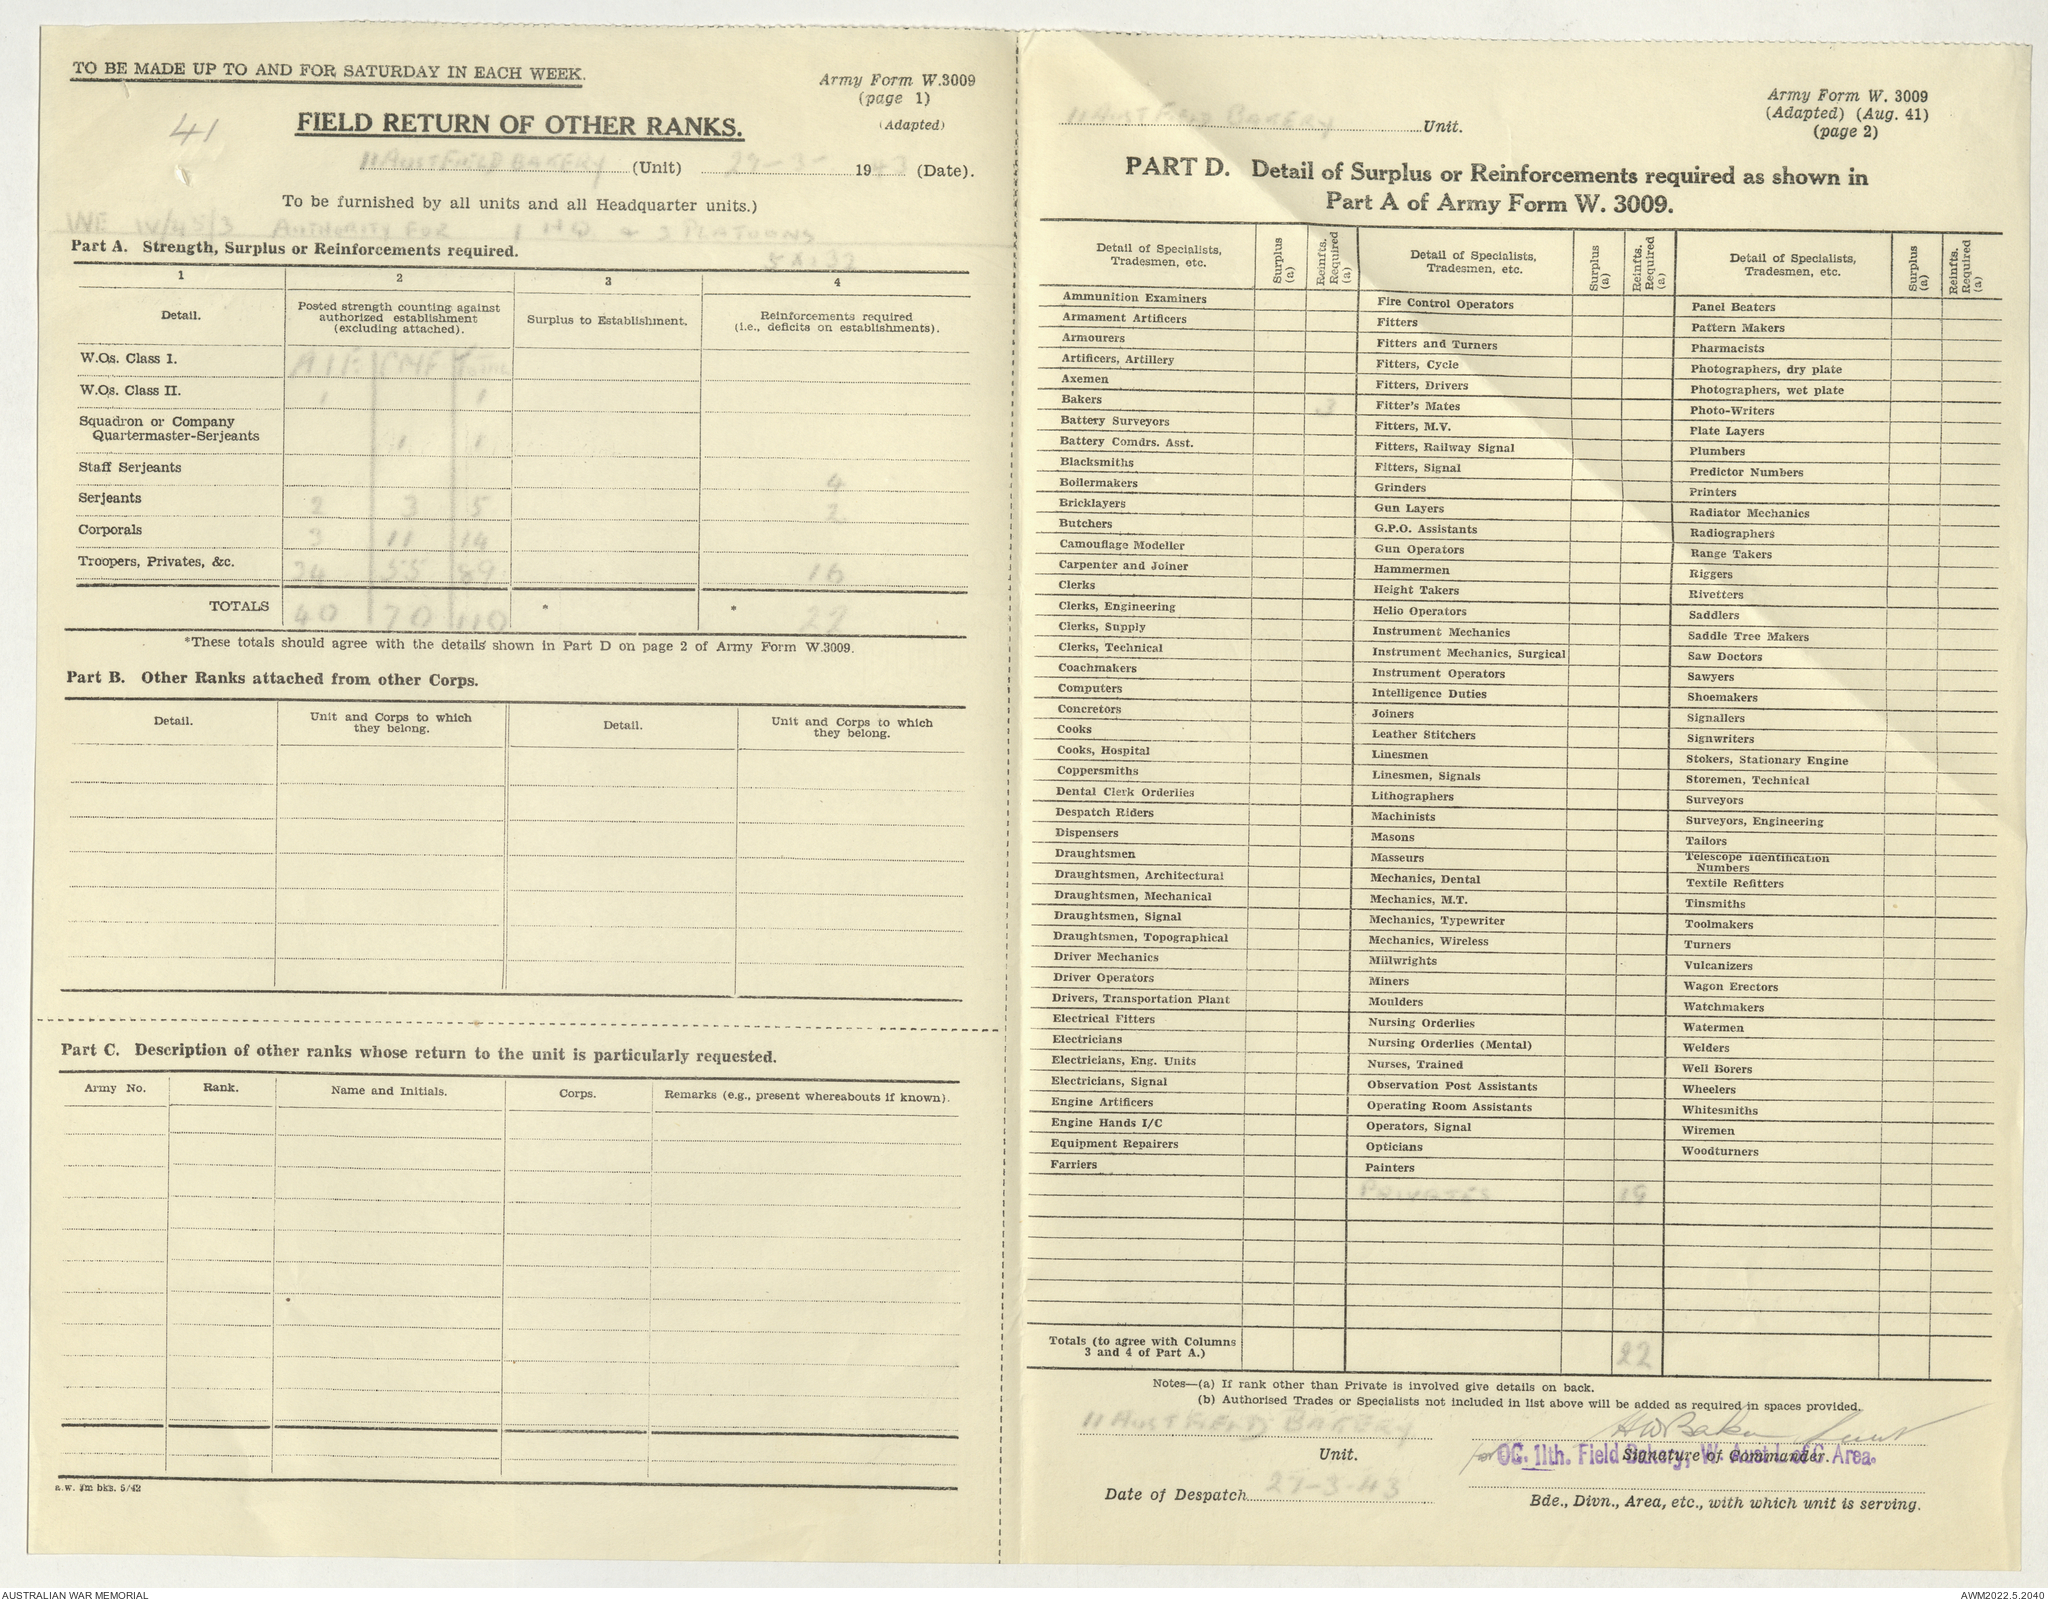 TO BE MADE UP TO AND FOR SATURDAY IN EACH WEEK.
Army Form W.3009
(page 1)
(Adapted)
41
FIELD RETURN OF OTHER RANKS.
11 AUST FIELD BAKERY (Unit) 27-3- 1943 (Date).
To be furnished by all units and all Headquarter units.)
WE IV/45/3 AUTHORITY FOR 1 HQ & 3 PLATOONS
Part A. Strength, Surplus or Reinforcements required.
1 2 3 4
Detail. Posted strength counting against authorized establishment (excluding attached). Surplus to Establishment. Reinforcements required (i.e., deficits on establishments).
W.Os. Class I. AIF CMF Total
W.Os. Class II. 1 1
Squadron or Company
Quartermaster-Serjeants 1 1
Staff Serjeants 4
Serjeants 2 3 5 2
Corporals 3 11 14
Troopers, Privates, &c. 34 55 89 16
TOTALS 40 70 110 * * 22
*These totals should agree with the details shown in Part D on page 2 of Army Form W.3009.
Part B. Other Ranks attached from other Corps.
Detail. Unit and Corps to which they belong. Detail. Unit and Corps to which they belong.
Part C. Description of other ranks whose return to the unit is particularly requested.
Army No. Rank. Name and Initials. Corps. Remarks (e.g., present whereabouts if known).
a.w. 3m bks. 5/42
Army Form W. 3009
(Adapted) (Aug. 41)
(page 2)
11 AUST FIELD BAKERY Unit.
PART D. Detail of Surplus or Reinforcements required as shown in
Part A of Army Form W. 3009.
Detail of Specialists, Tradesmen, etc. Surplus (a) Reinfts. Required (a) Detail of Specialists, Tradesmen, etc. Surplus (a) Reinfts. Required (a) Detail of Specialists, Tradesmen, etc. Surplus (a) Reinfts. Required (a)
Ammunition Examiners
Armament Artificers
Armourers
Artificers, Artillery
Axemen
Bakers 3
Battery Surveyors
Battery Comdrs. Asst.
Blacksmiths
Boilermakers
Bricklayers
Butchers
Camouflage Modeller
Carpenter and Joiner
Clerks
Clerks, Engineering
Clerks, Supply
Clerks, Technical
Coachmakers
Computers
Concretors
Cooks
Cooks, Hospital
Coppersmiths
Dental Clerk Orderlies
Despatch Riders
Dispensers
Draughtsmen
Draughtsmen, Architectural
Draughtsmen, Mechanical
Draughtsmen, Signal
Draughtsmen, Topographical
Driver Mechanics
Driver Operators
Drivers, Transportation Plant
Electrical Fitters
Electricians
Electricians, Eng. Units
Electricians, Signal
Engine Artificers
Engine Hands I/C
Equipment Repairers
Farriers
Fire Control Operators
Fitters
Fitters and Turners
Fitters, Cycle
Fitters, Drivers
Fitter's Mates
Fitters, M.V.
Fitters, Railway Signal
Fitters, Signal
Grinders
Gun Layers
G.P.O. Assistants
Gun Operators
Hammermen
Height Takers
Helio Operators
Instrument Mechanics
Instrument Mechanics, Surgical
Instrument Operators
Intelligence Duties
Joiners
Leather Stitchers
Linesmen
Linesmen, Signals
Lithographers
Machinists
Masons
Masseurs
Mechanics, Dental
Mechanics, M.T.
Mechanics, Typewriter
Mechanics, Wireless
Millwrights
Miners
Moulders
Nursing Orderlies
Nursing Orderlies (Mental)
Nurses, Trained
Observation Post Assistants
Operating Room Assistants
Operators, Signal
Opticians
Painters
PRIVATES 19
Panel Beaters
Pattern Makers
Pharmacists
Photographers, dry plate
Photographers, wet plate
Photo-Writers
Plate Layers
Plumbers
Predictor Numbers
Printers
Radiator Mechanics
Radiographers
Range Takers
Riggers
Rivetters
Saddlers
Saddle Tree Makers
Saw Doctors
Sawyers
Shoemakers
Signallers
Signwriters
Stokers, Stationary Engine
Storemen, Technical
Surveyors
Surveyors, Engineering
Tailors
Telescope Identification
Numbers
Textile Refitters
Tinsmiths
Toolmakers
Turners
Vulcanizers
Wagon Erectors
Watchmakers
Watermen
Welders
Well Borers
Wheelers
Whitesmiths
Wiremen
Woodturners
Totals (to agree with Columns
3 and 4 of Part A.) 22
Notes—(a) If rank other than Private is involved give details on back.
(b) Authorised Trades or Specialists not included in list above will be added as required in spaces provided.
11 AUST FIELD BAKERY
HW Baker Lieut
Unit.
for OC. 11th. Field Bakery, W. Aust L of C Area.
Signature of Commander.
Date of Despatch 27-3-43
Bde., Divn., Area, etc., with which unit is serving.
AUSTRALIAN WAR MEMORIAL
AWM2022.5.2040